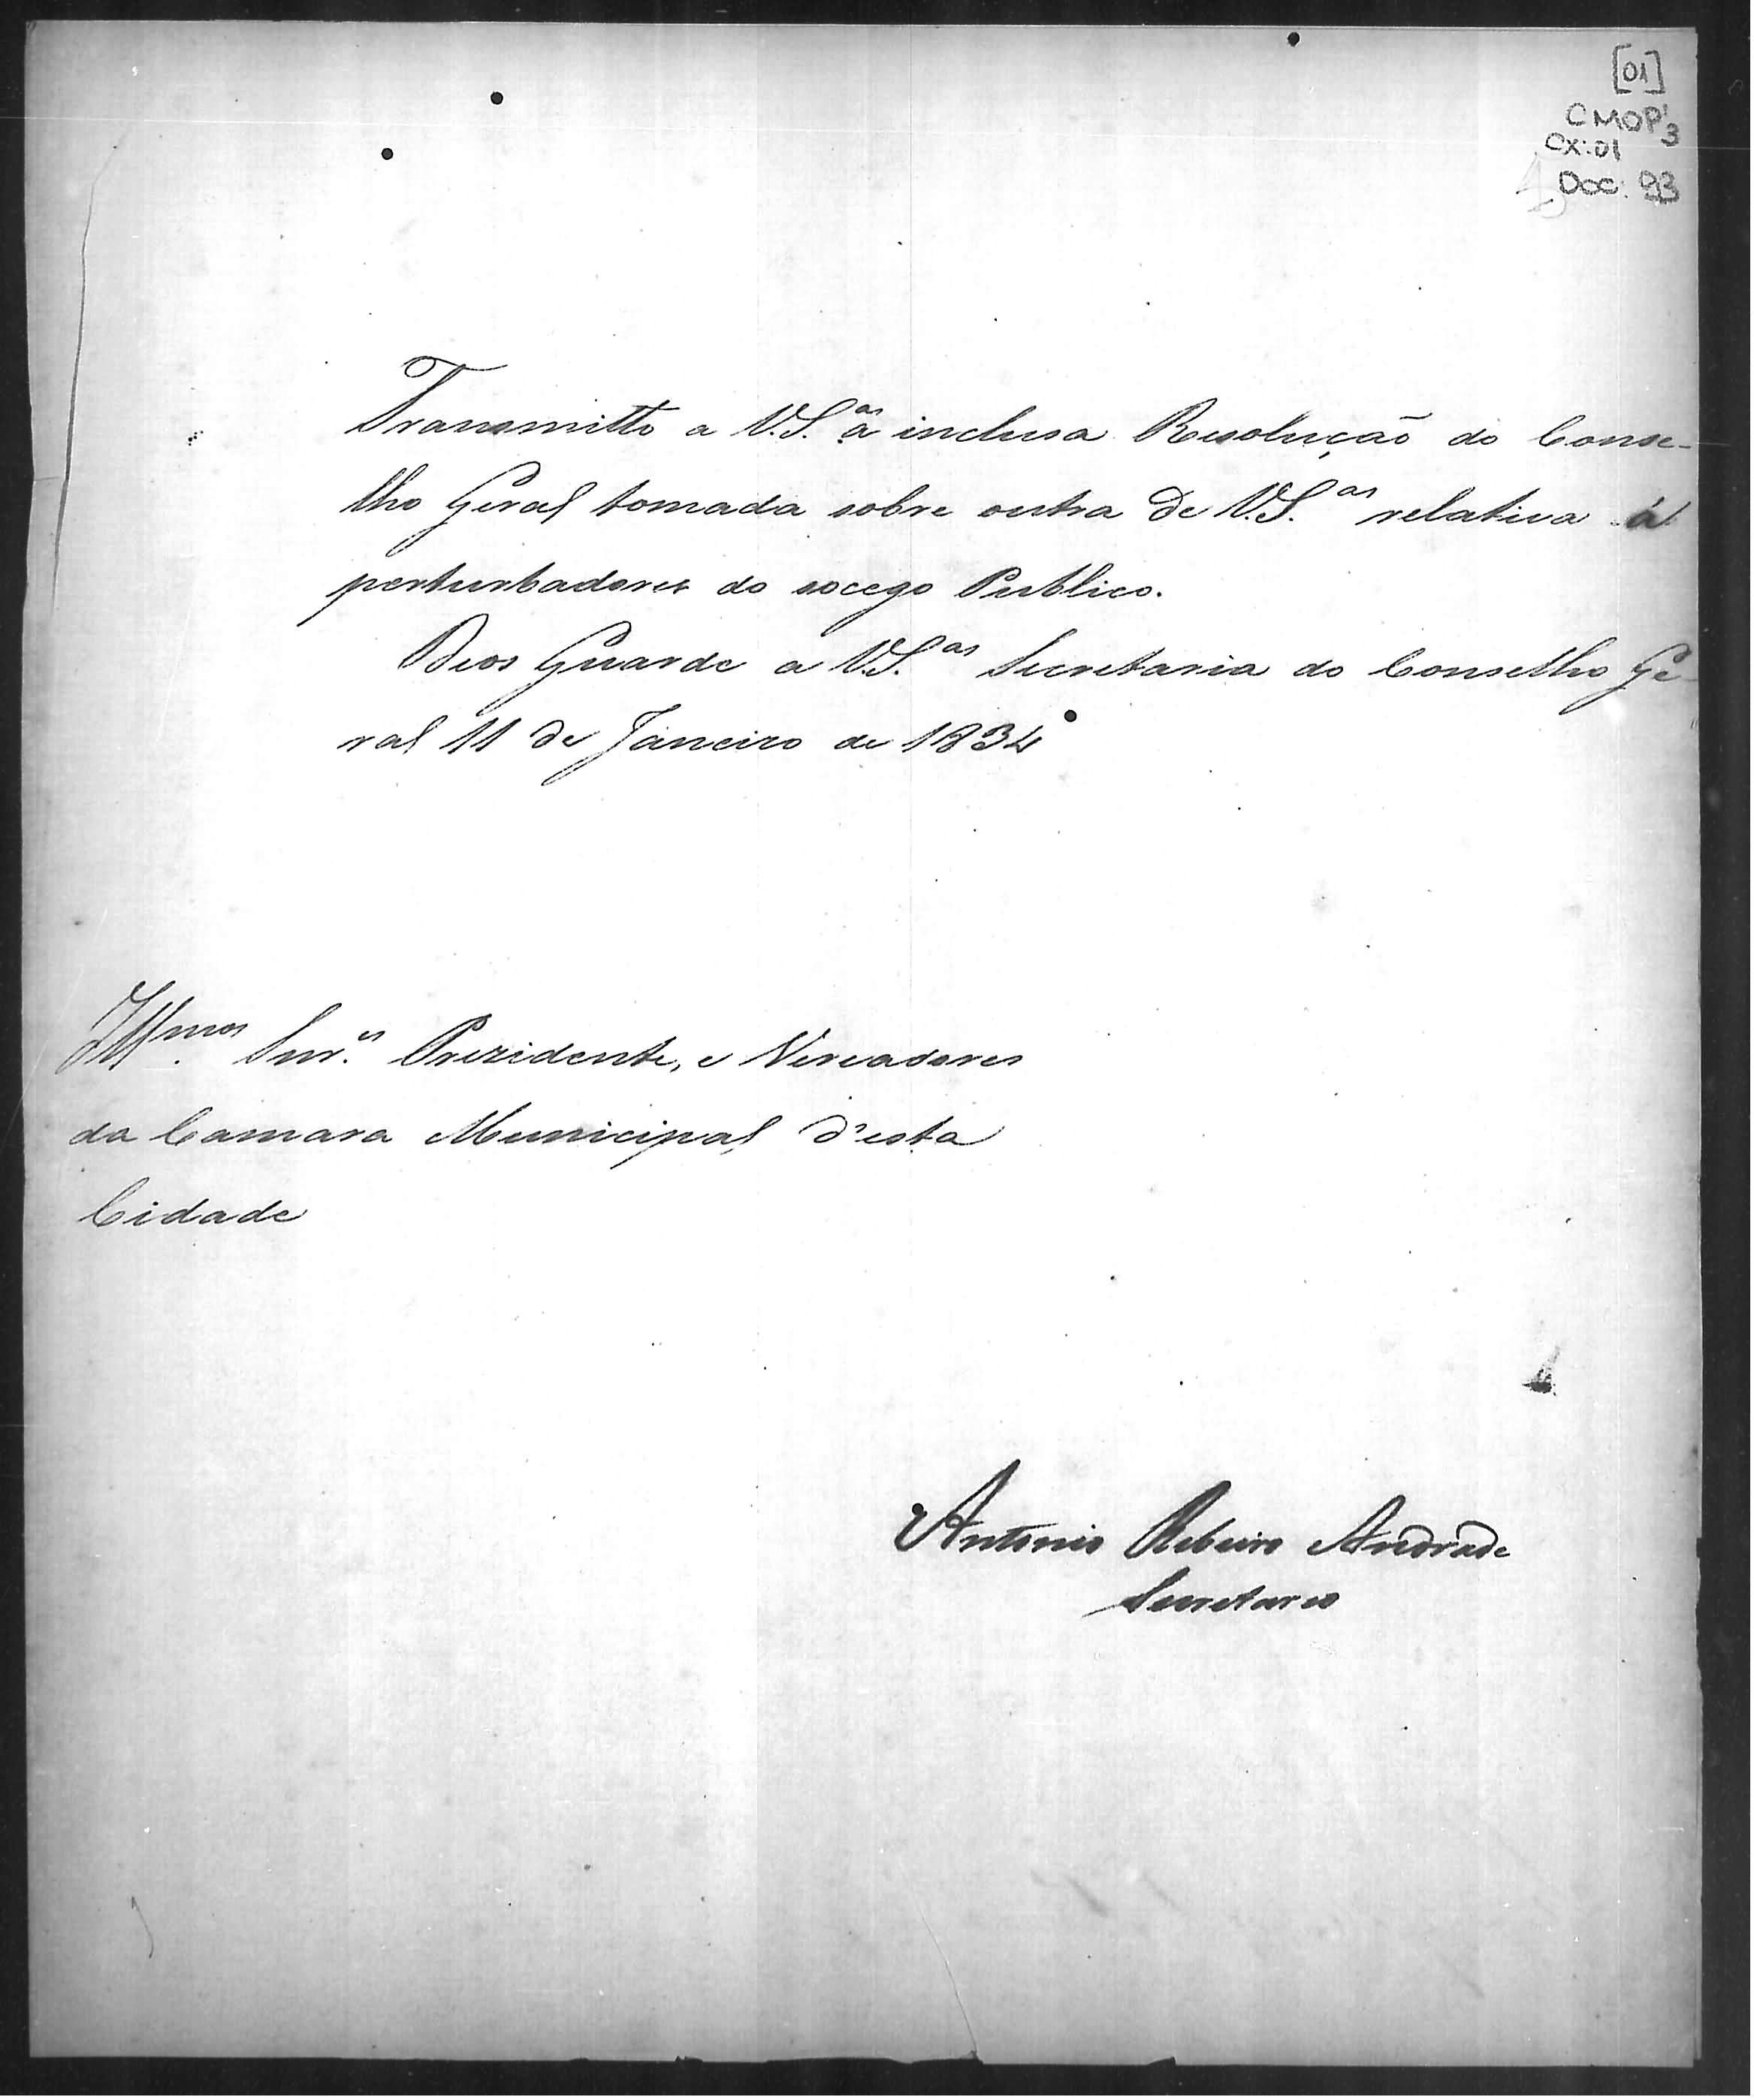 [01]
CMOP 3
CX: 01
Doc. 93
Transmitto a V.S.as a inclusa Resolução do Conse-
lho Geral tomada sobre outra de V.S.as relativa á
perturbadores do socego Publico.
Deos Guarde a V.S.as Secretaria do Conselho Ge-
ral 11 de Janeiro de 1834
Illmos. Snr.es Prezidente, e Vereadores
da Camara Municipal d'esta
Cidade
Antonio Ribeiro Andrade
Secretario